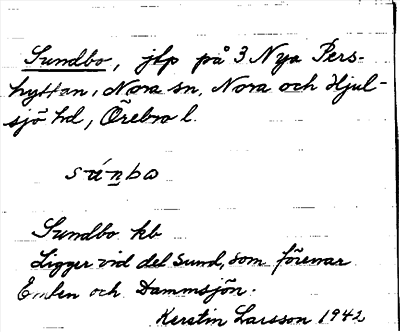 Sundbo, jfp på 3 Nya Pers-
hyttan, Nora sn, Nora och Hjul-
sjö hd, Örebro l.
Sundbo kb
Ligger vid del sund, som förenar
och Dammsjön.
Kerstin Larsson 1942